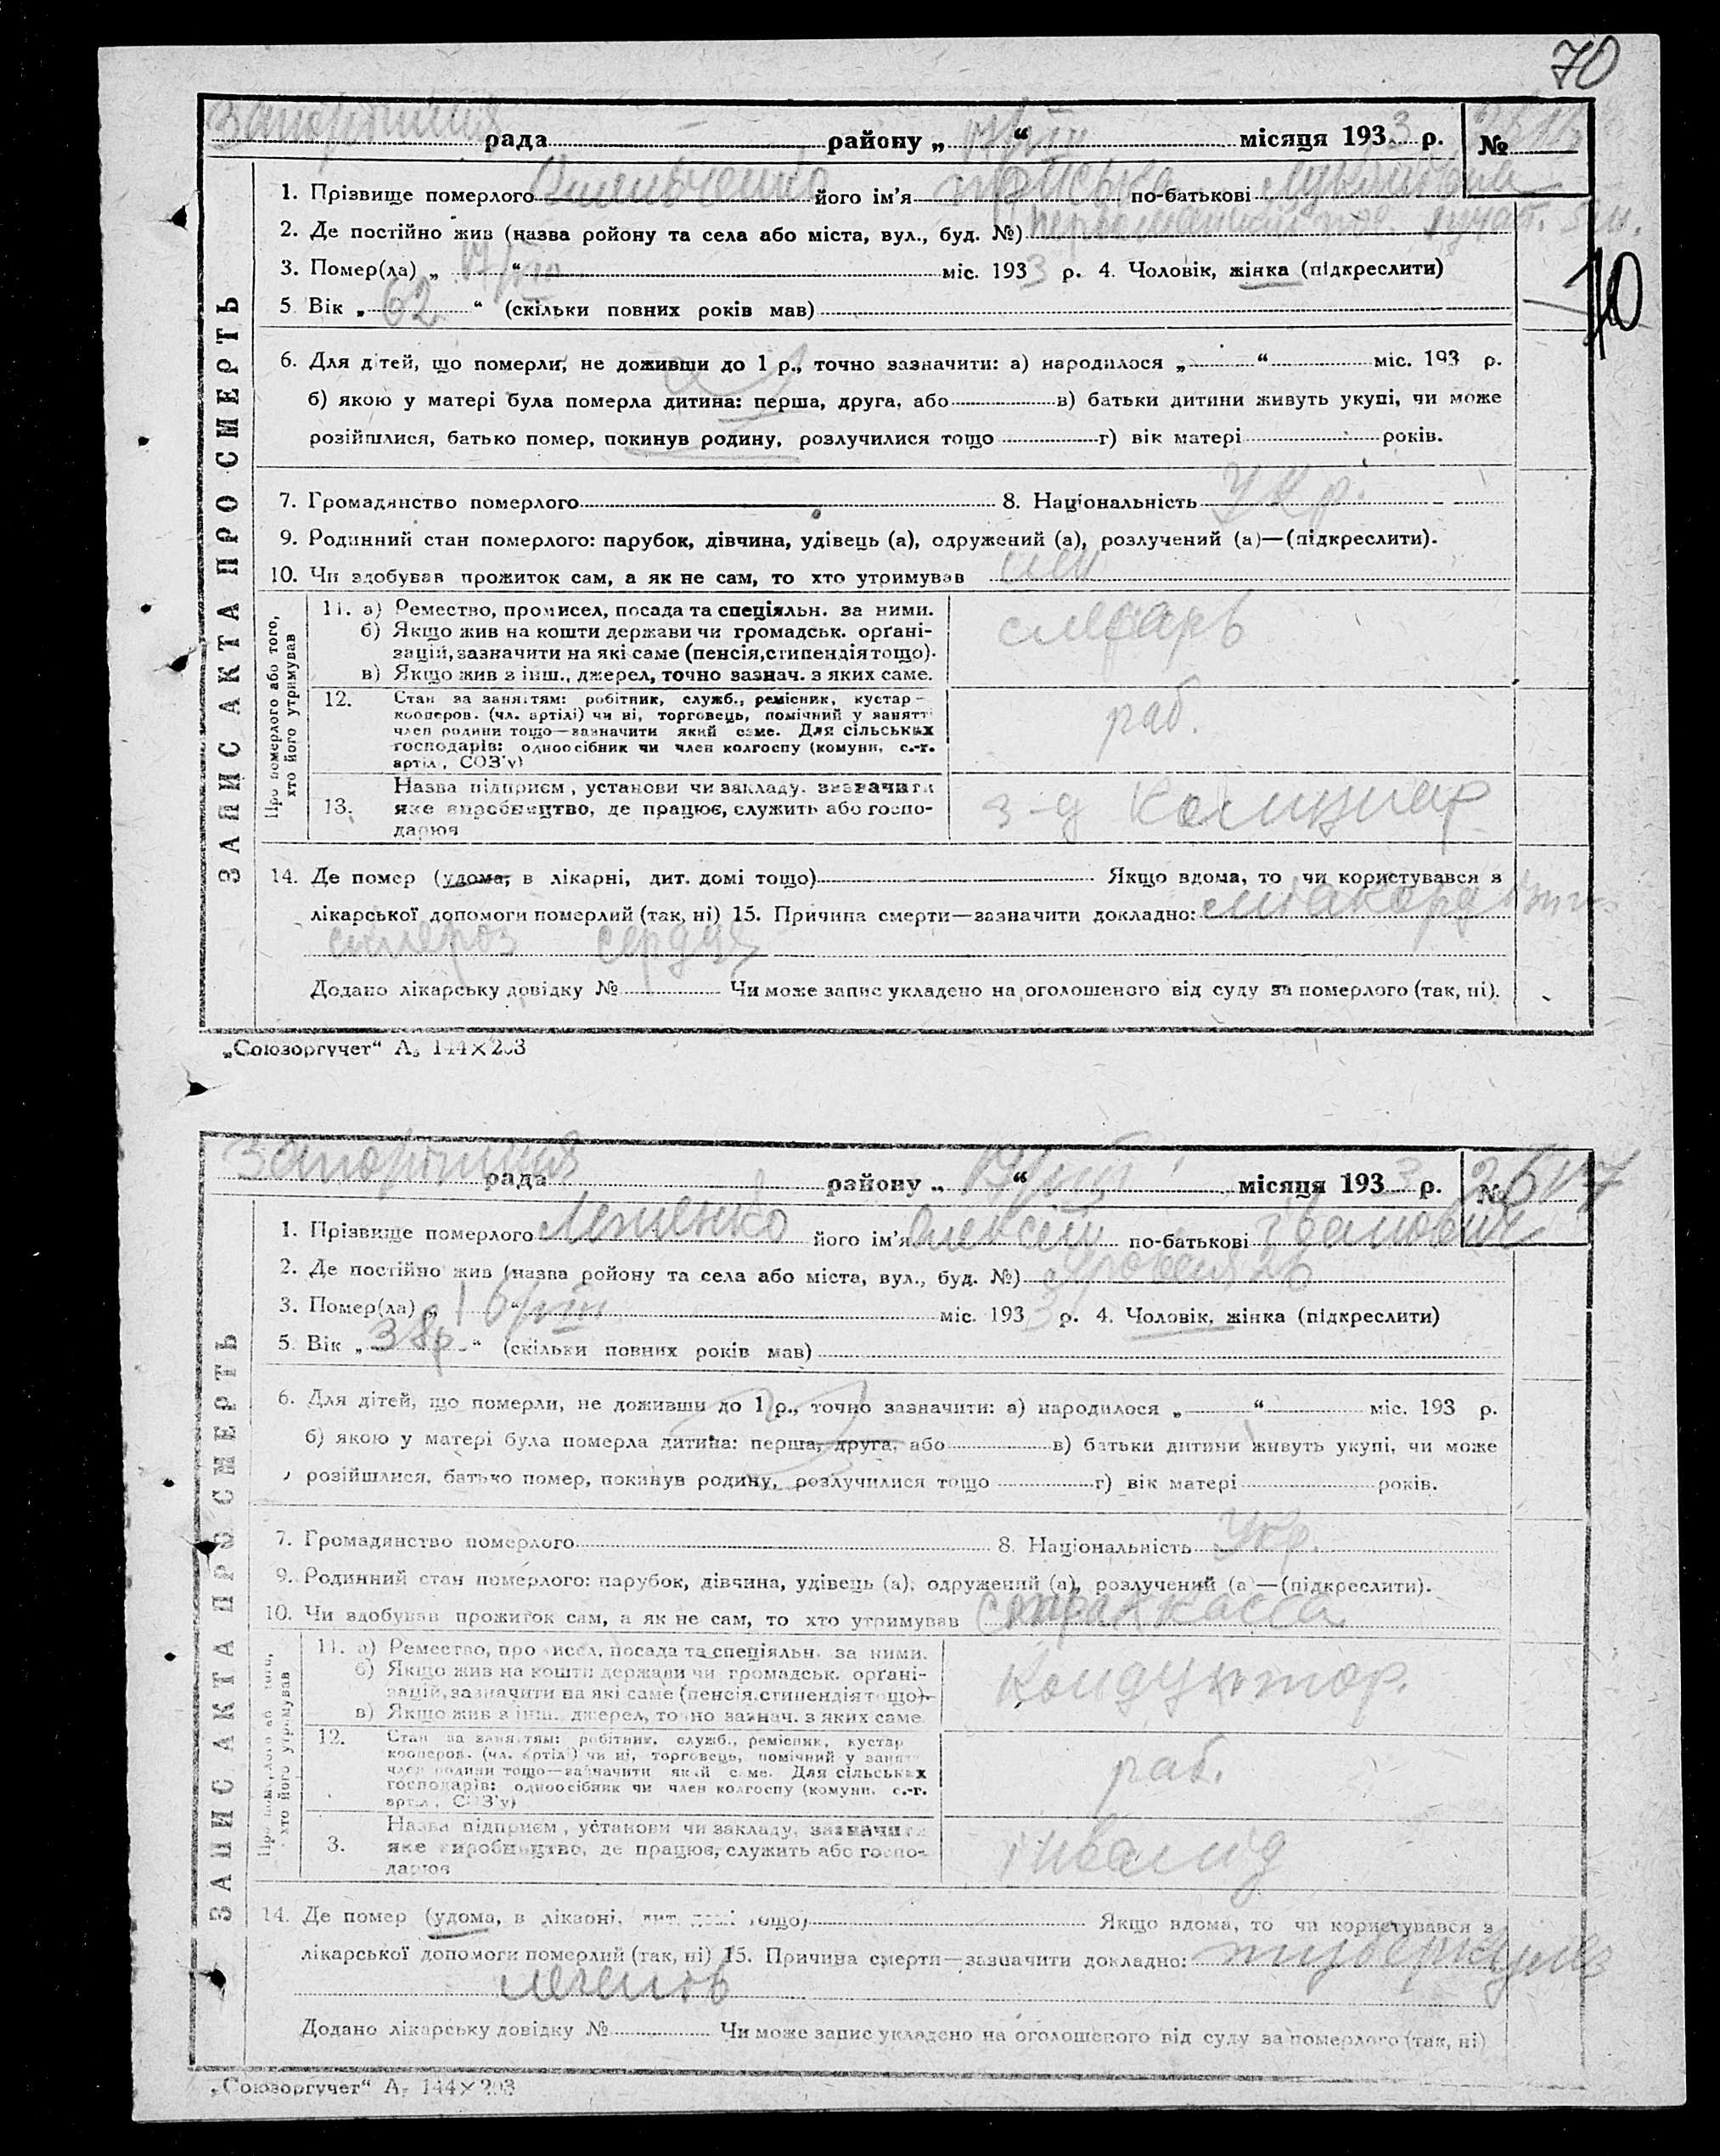 70
Запоріжжя рада району „ 17/VIII “ місяця 1933 р. №
1. Прізвище померлого Омельченко його ім'я по-батькові
2. Де постійно жив (назва ройону та села або міста, вул., буд. №)
3. Помер(ла) „ 17/VIII “ міс. 1933 р. 4. Чоловік, жінка (підкреслити)
70
5 Вік „ 62 “ (скільки повних років мав)
6. Для дітей, що померли, не доживши до 1 р., точно зазначити: а) народилося „ “ міс. 193 р.
б) якою у матері була померла дитина: перша, друга, або в) батьки дитини живуть укупі, чи може
розійшлися, батько помер, покинув родину, розлучилися тощо г) вік матері років.
7. Громадянство померлого 8. Національність Укр.
9. Родинний стан померлого: парубок, дівчина, удівець (а), одружений (а), розлучений (а)—(підкреслити).
10. Чи здобував прожиток сам, а як не сам, то хто утримував син
ЗАПИС АКТА ПРО СМЕРТЬ
Про померлого або того, хто його утримував
11. а) Ремество, промисел, посада та спеціяльн. за ними.
б) Якщо жив на кошти держави чи громадськ. орґані-
зацій, зазначити на які саме (пенсія, стипендія тощо).
в) Якщо жив з інш., джерел, точно зазнач. з яких саме.
слесарь
12. Стан за заняттям: робітник, служб., ремісник, кустар-
кооперов. (чл. артілі) чи ні, торговець, помічний у занятті
член родини тощо—зазначити який саме. Для сільських
господарів: одноосібник чи член колгоспу (комуни, с.-г.
артіл, СОЗ'у)
раб.
13. Назва підприєм, установи чи закладу, зазначити
яке виробництво, де працює, служить або госпо-
дарює
з-д Комунар
14. Де помер (удома, в лікарні, дит. домі тощо) Якщо вдома, то чи користувався з
лікарської допомоги померлий (так, ні) 15. Причина смерти—зазначити докладно:
склероз сердца
Додано лікарську довідку № Чи може запис укладено на оголошеного від суду за померлого (так, ні).
„Союзоргучет“ А5 144×203
Запоріжжя рада району „ 19/VIII “ місяця 1933 р. № 2617
1. Прізвище померлого його ім'я Олексій по-батькові
2. Де постійно жив (назва ройону та села або міста, вул., буд. №) 26
3. Помер(ла) „ 16/VIII “ міс. 1933 р. 4. Чоловік, жінка (підкреслити)
5. Вік „ 38р. “ (скільки повних років мав)
6. Для дітей, що померли, не доживши до 1 р., точно зазначити: а) народилося „ “ міс. 193 р.
б) якою у матері була померла дитина: перша, друга, або в) батьки дитини живуть укупі, чи може
розійшлися, батько помер, покинув родину, розлучилися тощо г) вік матері років.
7. Громадянство померлого 8. Національність Укр.
9. Родинний стан померлого: парубок, дівчина, удівець (а), одружений (а), розлучений (а)—(підкреслити).
10. Чи здобував прожиток сам, а як не сам, то хто утримував страхкасса
ЗАПИС АКТА ПРО СМЕРТЬ
11. а) Ремество, промисел, посада та спеціяльн. за ними.
б) Якщо жив на кошти держави чи громадськ. орґані-
зацій, зазначити на які саме (пенсія, стипендія тощо).
в) Якщо жив з інш. джерел, точно зазнач. з яких саме.
Кондуктор.
12. Стан за заняттям: робітник, служб., ремісник, кустар
кооперов. (чл. артілі) чи ні, торговець, помічний у занятті
член родини тощо—зазначити який саме. Для сільських
господарів: одноосібник чи член колгоспу (комуни, с.-г.
артіл, СОЗ'у)
раб.
3. Назва підприєм, установи чи закладу, зазначити
яке виробництво, де працює, служить або госпо-
дарює
інвалід
14. Де помер (удома, в лікарні, дит. домі тощо) Якщо вдома, то чи користувався з
лікарської допомоги померлий (так, ні) 15. Причина смерти—зазначити докладно: туберкульоз
легень
Додано лікарську довідку № Чи може запис укладено на оголошеного від суду за померлого (так, ні)
„Союзоргучет“ А5 144×203